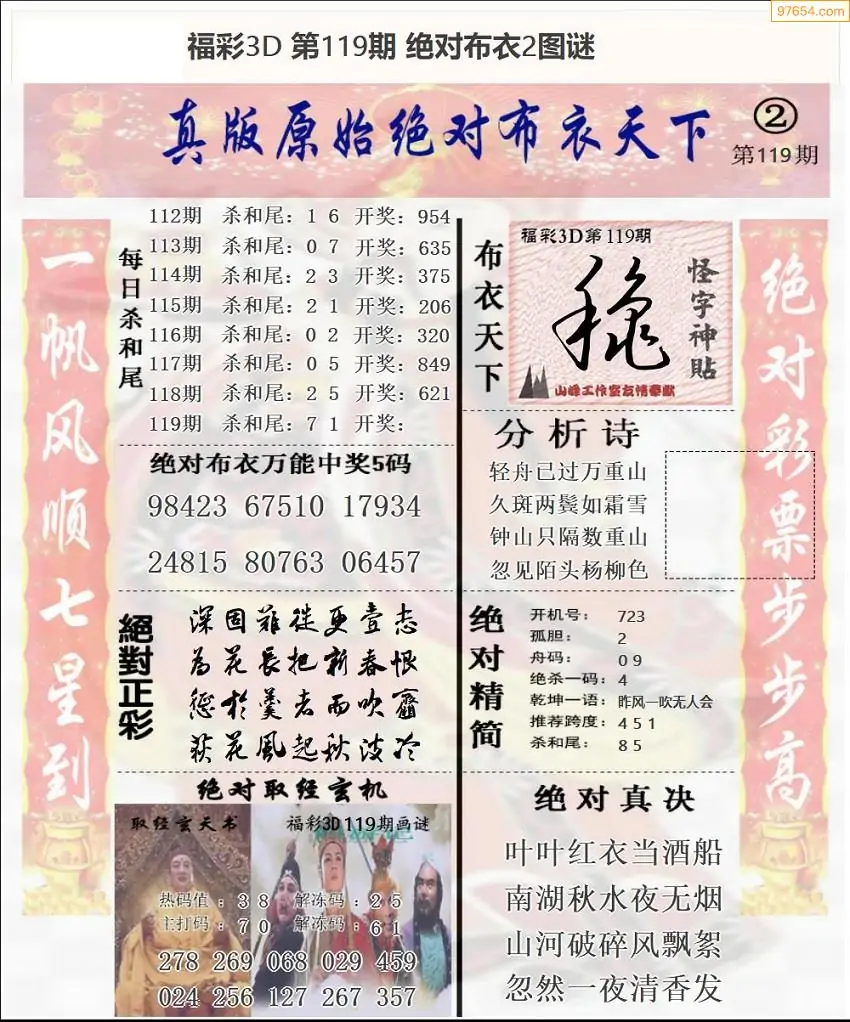 97654.com
福彩3D 第119期 绝对布衣2图谜
真版原始绝对布衣天下
②
第119期
一帆风顺七星到
每日杀和尾
112期 杀和尾：1 6 开奖：954
113期 杀和尾：0 7 开奖：635
114期 杀和尾：2 3 开奖：375
115期 杀和尾：2 1 开奖：206
116期 杀和尾：0 2 开奖：320
117期 杀和尾：0 5 开奖：849
118期 杀和尾：2 5 开奖：621
119期 杀和尾：7 1 开奖：
绝对布衣万能中奖5码
98423 67510 17934
24815 80763 06457
絕對正彩
深固難徙更壹志
為花長把新春恨
惩於羹者而吹齏
荻花風起秋波冷
绝对取经玄机
取经玄天书
福彩3D119期画谜
热码值：3 8 解冻码：2 5
主打码：7 0 解冻码：6 1
278 269 068 029 459
024 256 127 267 357
布衣天下
福彩3D第119期
怪字神貼
山峰工作室友情奉献
分析诗
轻舟已过万重山
久斑两鬓如霜雪
钟山只隔数重山
忽见陌头杨柳色
绝对精简
开机号： 723
孤胆： 2
舟码： 0 9
绝杀一码：4
乾坤一语：昨风一吹无人会
推荐跨度：4 5 1
杀和尾： 8 5
绝对真决
叶叶红衣当酒船
南湖秋水夜无烟
山河破碎风飘絮
忽然一夜清香发
绝对彩票步步高